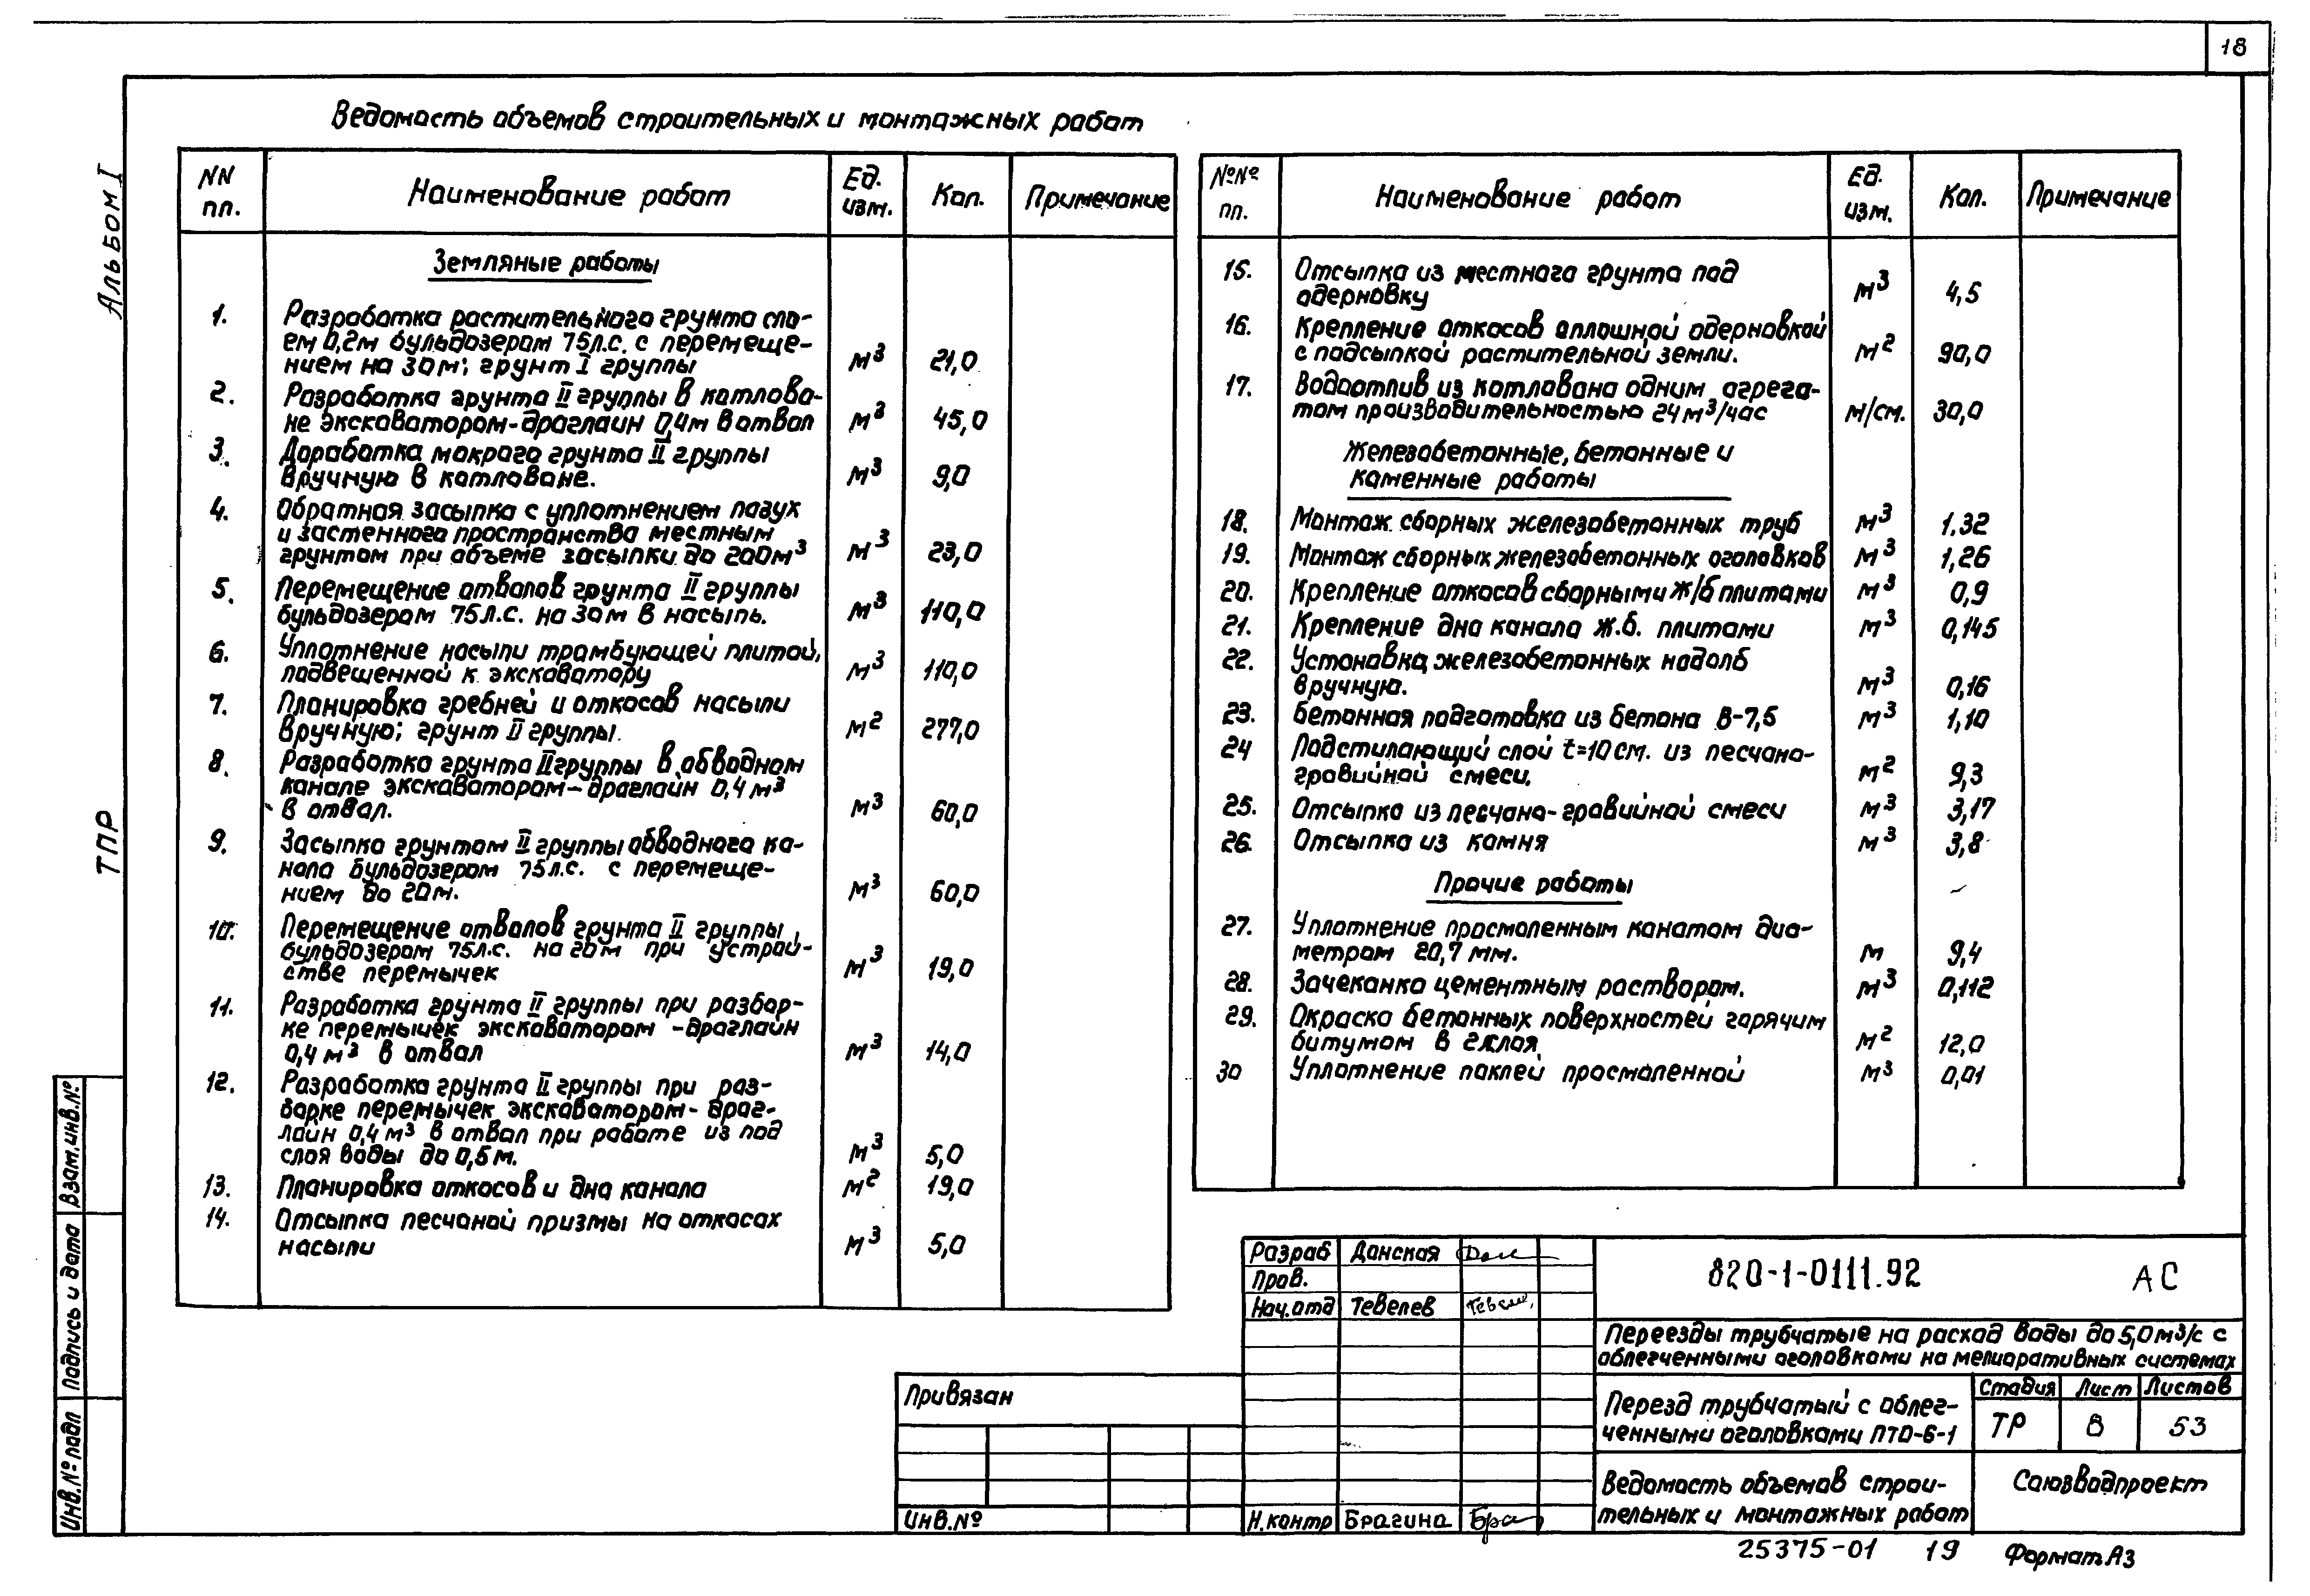 18
Ведомость объемов строительных и монтажных работ
Альбом I
ТПР
NN пп. Наименование работ Ед. изм. Кол. Примечание
Земляные работы
1. Разработка растительного грунта сло-
ем 0,2м бульдозером 75л.с. с перемеще-
нием на 30м; грунт I группы м3 21,0
2. Разработка грунта II группы в котлова-
не экскаватором-драглайн 0,4м в отвал м3 45,0
3. Доработка мокрого грунта II группы
вручную в котловане. м3 9,0
4. Обратная засыпка с уплотнением пазух
и застенного пространства местным
грунтом при объеме засыпки до 200м3 м3 23,0
5. Перемещение отвалов грунта II группы
бульдозером 75л.с. на 30м в насыпь. м3 110,0
6. Уплотнение насыпи трамбующей плитой,
подвешенной к экскаватору м3 110,0
7. Планировка гребней и откосов насыпи
вручную; грунт II группы. м2 277,0
8. Разработка грунта II группы в обводном
канале экскаватором-драглайн 0,4м3
в отвал. м3 60,0
9. Засыпка грунтом II группы обводного ка-
нала бульдозером 75л.с. с перемеще-
нием до 20м. м3 60,0
10. Перемещение отвалов грунта II группы
бульдозером 75л.с. на 20м при устрой-
стве перемычек м3 19,0
11. Разработка грунта II группы при разбор-
ке перемычек экскаватором -драглайн
0,4м3 в отвал м3 14,0
12. Разработка грунта II группы при раз-
борке перемычек экскаватором-драг-
лайн 0,4м3 в отвал при работе из под
слоя воды до 0,5м. м3 5,0
13. Планировка откосов и дна канала м2 19,0
14. Отсыпка песчаной призмы на откосах
насыпи м3 5,0
№№ пп. Наименование работ Ед. изм. Кол. Примечание
15. Отсыпка из местного грунта под
одерновку м3 4,5
16. Крепление откосов сплошной одерновкой
с подсыпкой растительной земли. м2 90,0
17. Водоотлив из котлована одним агрега-
том производительностью 24м3/час м/см. 30,0
Железобетонные, бетонные и
каменные работы
18. Монтаж сборных железобетонных труб м3 1.32
19. Монтаж сборных железобетонных оголовков м3 1,26
20. Крепление откосов сборными ж/б плитами м3 0,9
21. Крепление дна канала ж.б. плитами м3 0,145
22. Установка железобетонных надолб
вручную. м3 0,16
23. Бетонная подготовка из бетона В-7,5 м3 1,10
24 Подстилающий слой t=10см. из песчано-
гравийной смеси. м2 9,3
25. Отсыпка из песчано-гравийной смеси м3 3,17
26. Отсыпка из камня м3 3,8
Прочие работы
27. Уплотнение просмоленным канатом диа-
метром 20,7 мм. м 9,4
28. Зачеканка цементным раствором. м3 0,112
29. Окраска бетонных поверхностей горячим
битумом в 2 слоя м2 12,0
30 Уплотнение паклей просмоленной м3 0,01
Разраб Донская
Пров.
Нач.отд Тевелев
Н.контр Брагина
820-1-0111.92 АС
Переезды трубчатые на расход воды до 5,0м3/с с
облегченными оголовками на мелиоративных системах
Переезд трубчатый с облег-
ченными оголовками ПТО-6-1
Стадия Лист Листов
ТР 8 53
Ведомость объемов строи-
тельных и монтажных работ
Союзводпроект
Привязан
Инв.№
Инв.№ подл Подпись и дата Взам.инв.№
25375-01 19 Формат А3